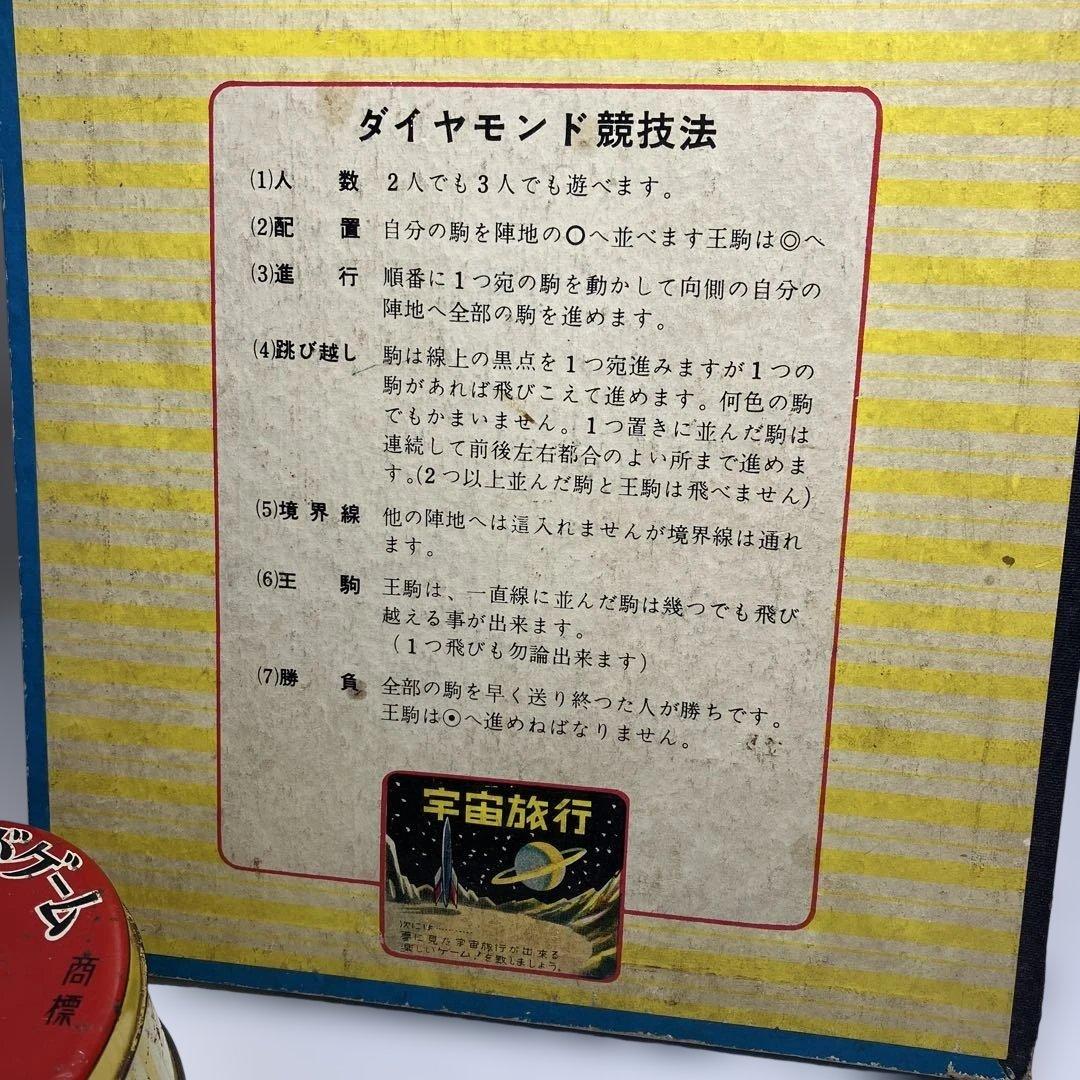 ダイヤモンド競技法
(1)人数 2人でも3人でも遊べます。
(2)配置 自分の駒を陣地の○へ並べます王駒は◎へ
(3)進行 順番に1つ宛の駒を動かして向側の自分の
陣地へ全部の駒を進めます。
(4)跳び越し 駒は線上の黒点を1つ宛進みますが1つの
駒があれば飛びこえて進めます。何色の駒
でもかまいません。1つ置きに並んだ駒は
連続して前後左右都合のよい所まで進めま
す。(2つ以上並んだ駒と王駒は飛べません)
(5)境界線 他の陣地へは這入れませんが境界線は通れ
ます。
(6)王駒 王駒は、一直線に並んだ駒は幾つでも飛び
越える事が出来ます。
(1つ飛びも勿論出来ます)
(7)勝負 全部の駒を早く送り終つた人が勝ちです。
王駒は⦿へ進めねばなりません。
宇宙旅行
次には………
夢に見た宇宙旅行が出来る
楽しいゲーム!を致しましょう。
ドゲーム
商標